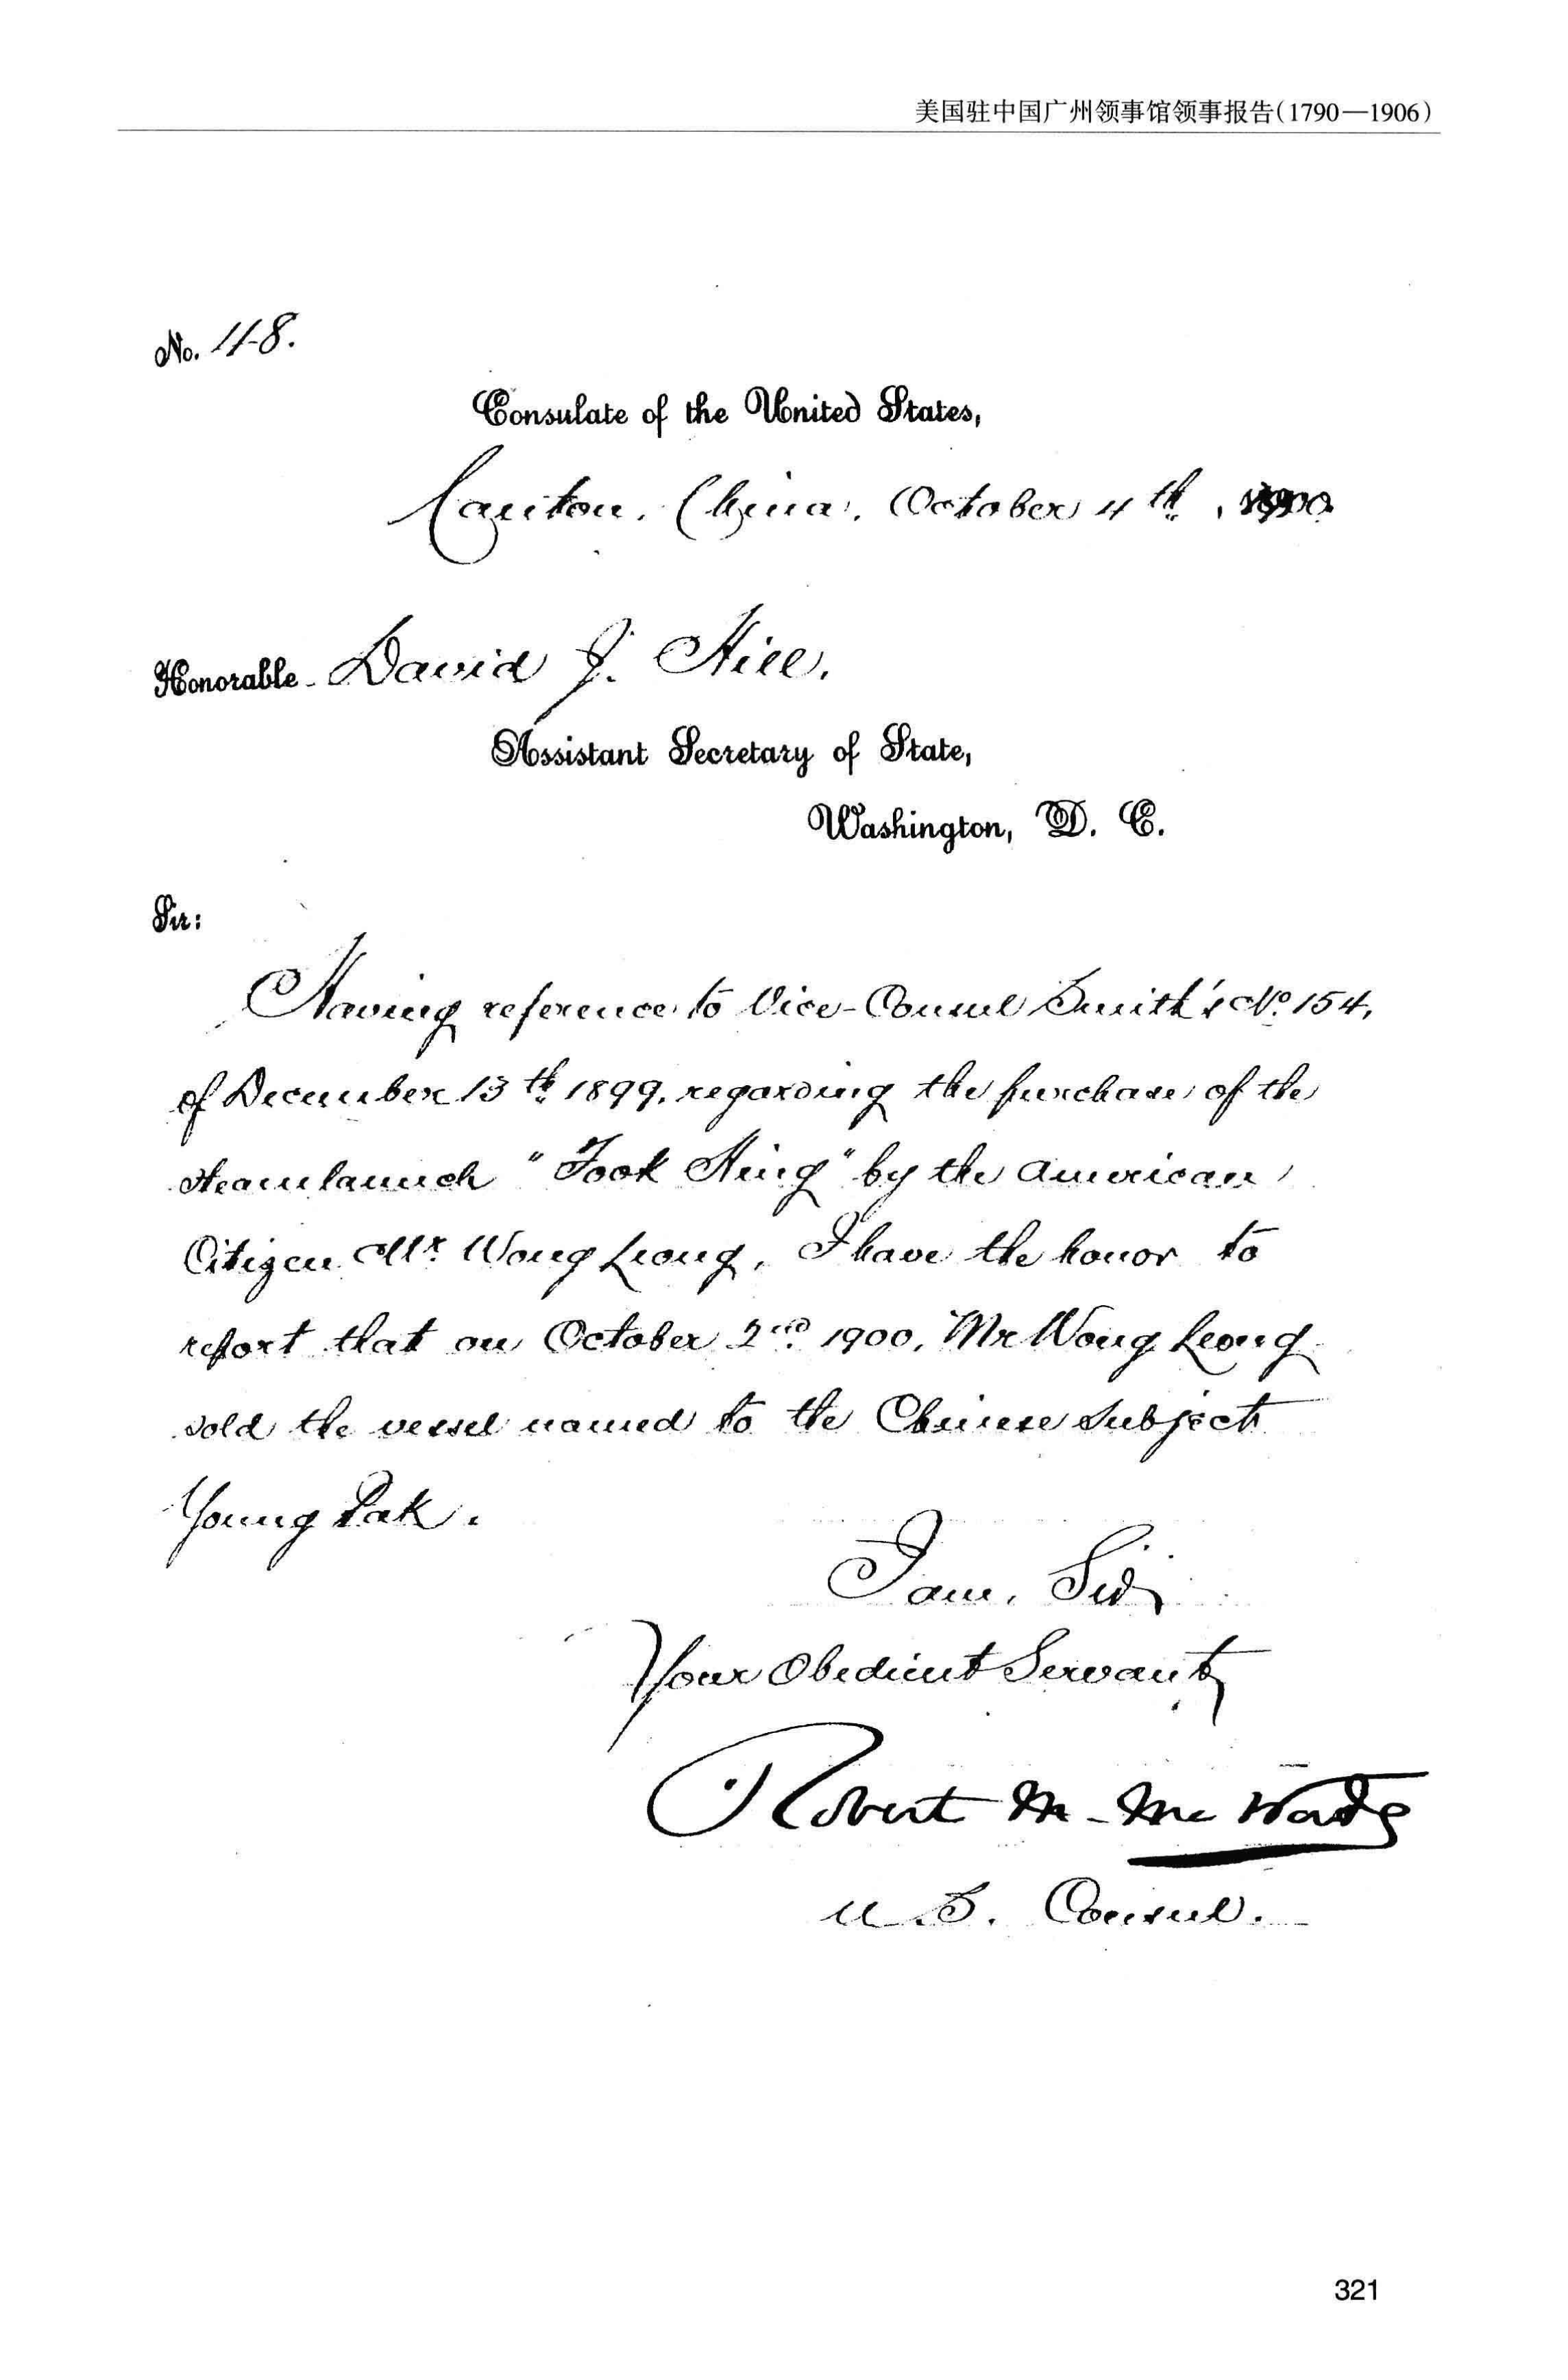 美国驻中国广州领事馆领事报告(1790—1906)
No. 48.
Consulate of the United States,
Canton, China, October 4th, 1900
Honorable David J. Hill,
Assistant Secretary of State,
Washington, D. C.
Sir:
Having reference to Vice-Consul Smith's No. 154,
of December 13th 1899, regarding the purchase of the
steam launch "Fook Hing" by the American
Citizen Mr. Wong Leong, I have the honor to
report that on October 2nd 1900, Mr Wong Leong
sold the vessel named to the Chinese subject
Young Pak.
I am, Sir,
Your Obedient Servant,
Robert M. McWade
U.S. Consul.
321